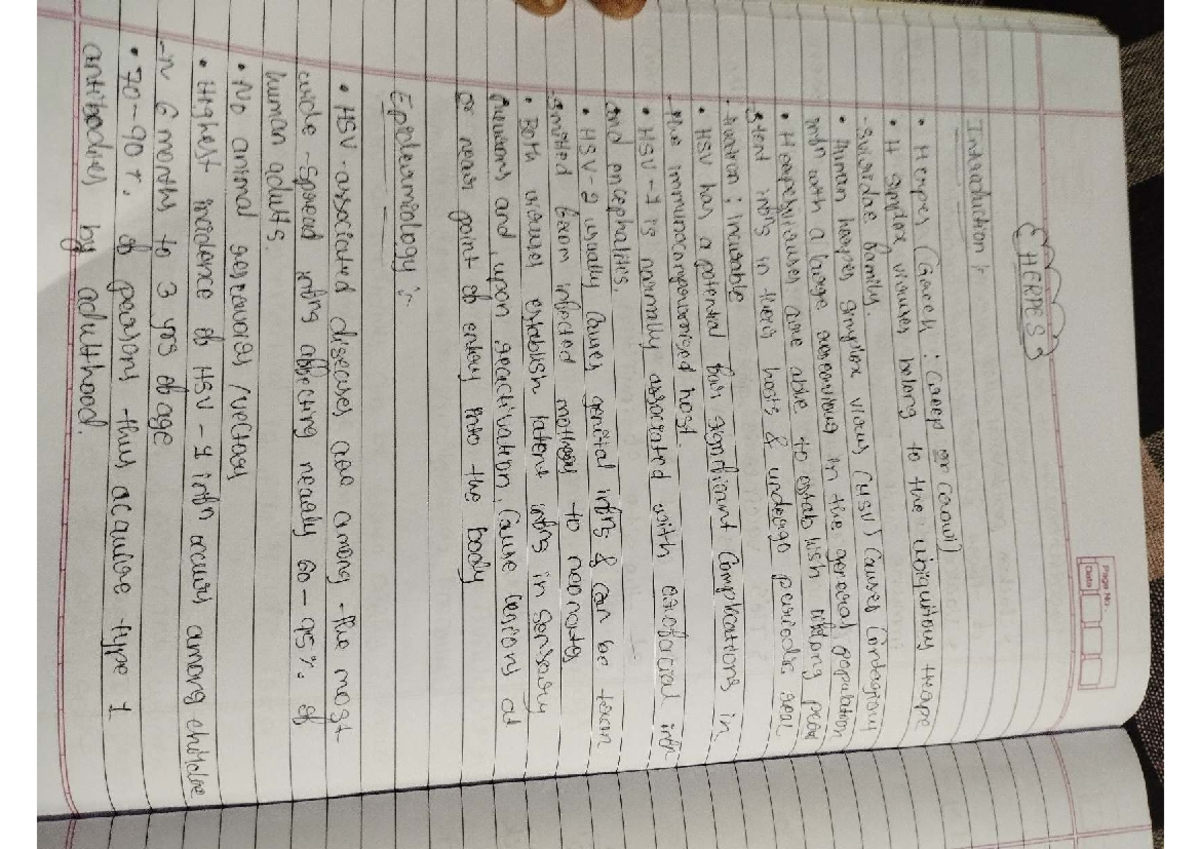 Page No :
Date
HERPES
Introduction :-
• Herpes (Greek : creep or crawl)
• H simplex viruses belong to the ubiquitous Herpe
-sviridae family.
• Human herpes simplex virus (HSV) causes contagious
infn with a large reservoir in the general population
• Herpesviruses are able to establish lifelong persi
-stent infns in their hosts & undergo periodic reac
-tivation : incurable
• HSV has a potential for significant complications in
the immunocompromised host.
• HSV-1 is normally associated with orofacial infn
and encephalites.
• HSV-2 usually causes genital infns & can be tran
-smitted from infected mothers to neonates
• Both viruses establish latent infns in sensory
neurons and, upon reactivation, cause lesions at
or near point of entry into the body
Epidemiology :-
• HSV-associated diseases are among the most
wide-spread infns affecting nearly 60-95% of
human adults.
• No animal reservoirs / vectors
• Highest incidence of HSV-1 infn occurs among childre
-n 6 months to 3 yrs of age
• 70-90% of persons thus acquire type 1
antibodies by adulthood.